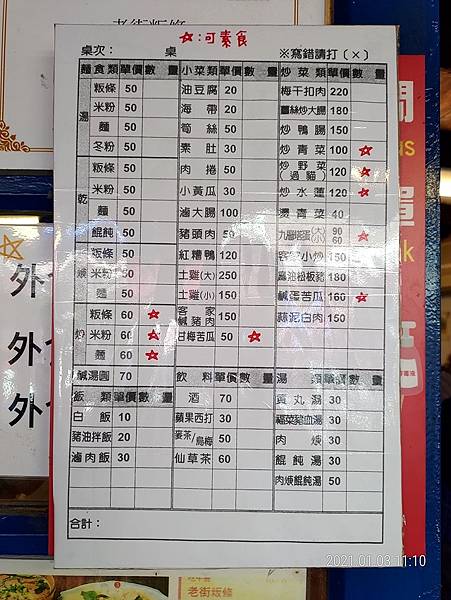 老街粄條
☆:可素食
桌次： 桌 ※寫錯請打（×）
麵食類 單價 數量 小菜類 單價 數量 炒菜類 單價 數量
湯 粄條 50 油豆腐 20 梅干扣肉 220
米粉 50 海帶 20 薑絲炒大腸 180
麵 50 筍絲 50 炒鴨腸 150
冬粉 50 素肚 30 炒青菜 100 ☆
乾 粄條 50 肉捲 50 炒野菜（過貓） 120 ☆
米粉 50 小黃瓜 30 炒水蓮 120 ☆
麵 50 滷大腸 100 燙青菜 40
餛飩 50 豬頭肉 50 九層塔蛋 大 90 小 60 ☆
粄條 50 紅糟鴨 120 客家小炒 150
米粉 50 土雞(大) 250 醬油松板豬 180
麵 50 土雞(小) 150 鹹蛋苦瓜 160 ☆
炒 粄條 60 ☆ 客家鹹豬肉 150 蒜泥白肉 150
米粉 60 ☆ 甘梅苦瓜 50 ☆
麵 60 ☆
鹹湯圓 70 飲料 單價 數量 湯類 單價 數量
飯類 單價 數量 酒 70 貢丸湯 30
白飯 10 蘋果西打 30 福菜豬血湯 30
豬油拌飯 20 麥茶/烏梅 50 肉焿 30
滷肉飯 30 仙草茶 60 餛飩湯 30
肉焿餛飩湯 50
合計：
外
外
外
老街粄條
2021.01.03 11:10